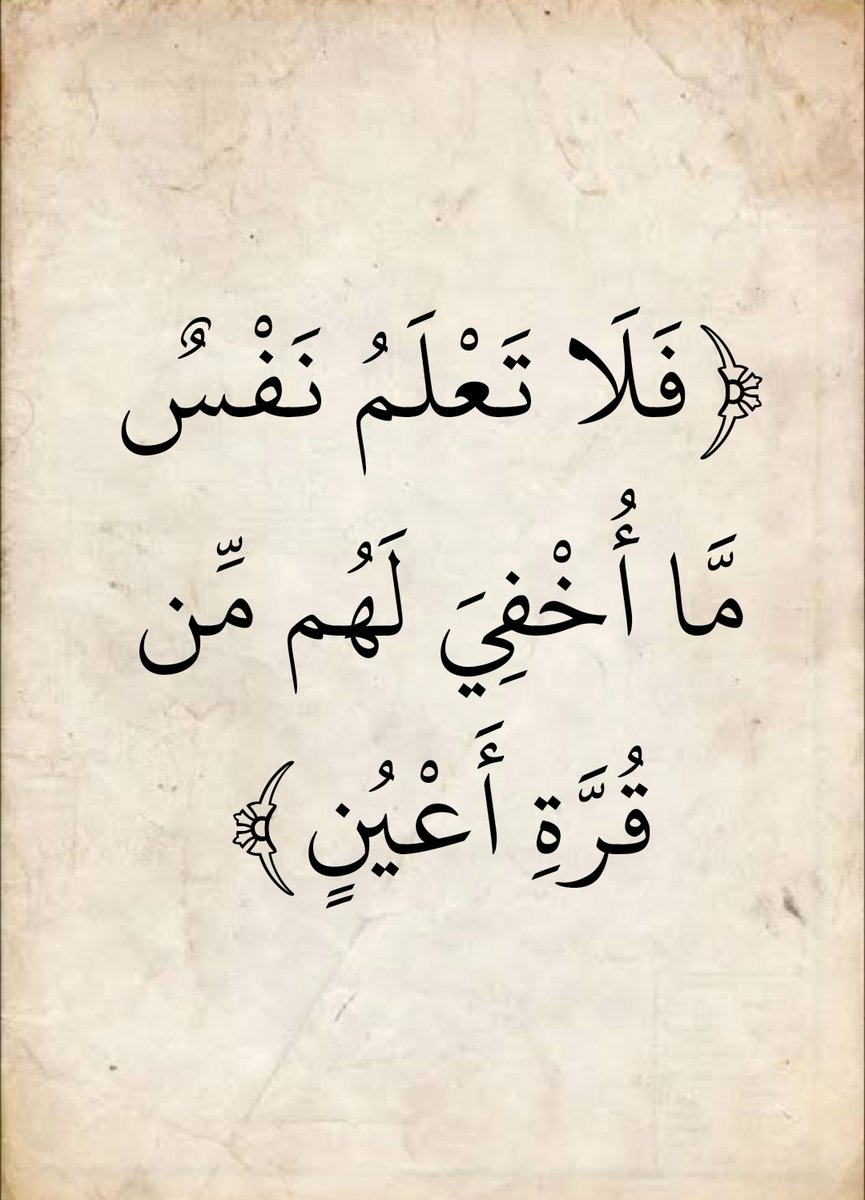 ﴿فَلَا تَعْلَمُ نَفْسٌ
مَّا أُخْفِيَ لَهُم مِّن
قُرَّةِ أَعْيُنٍ﴾